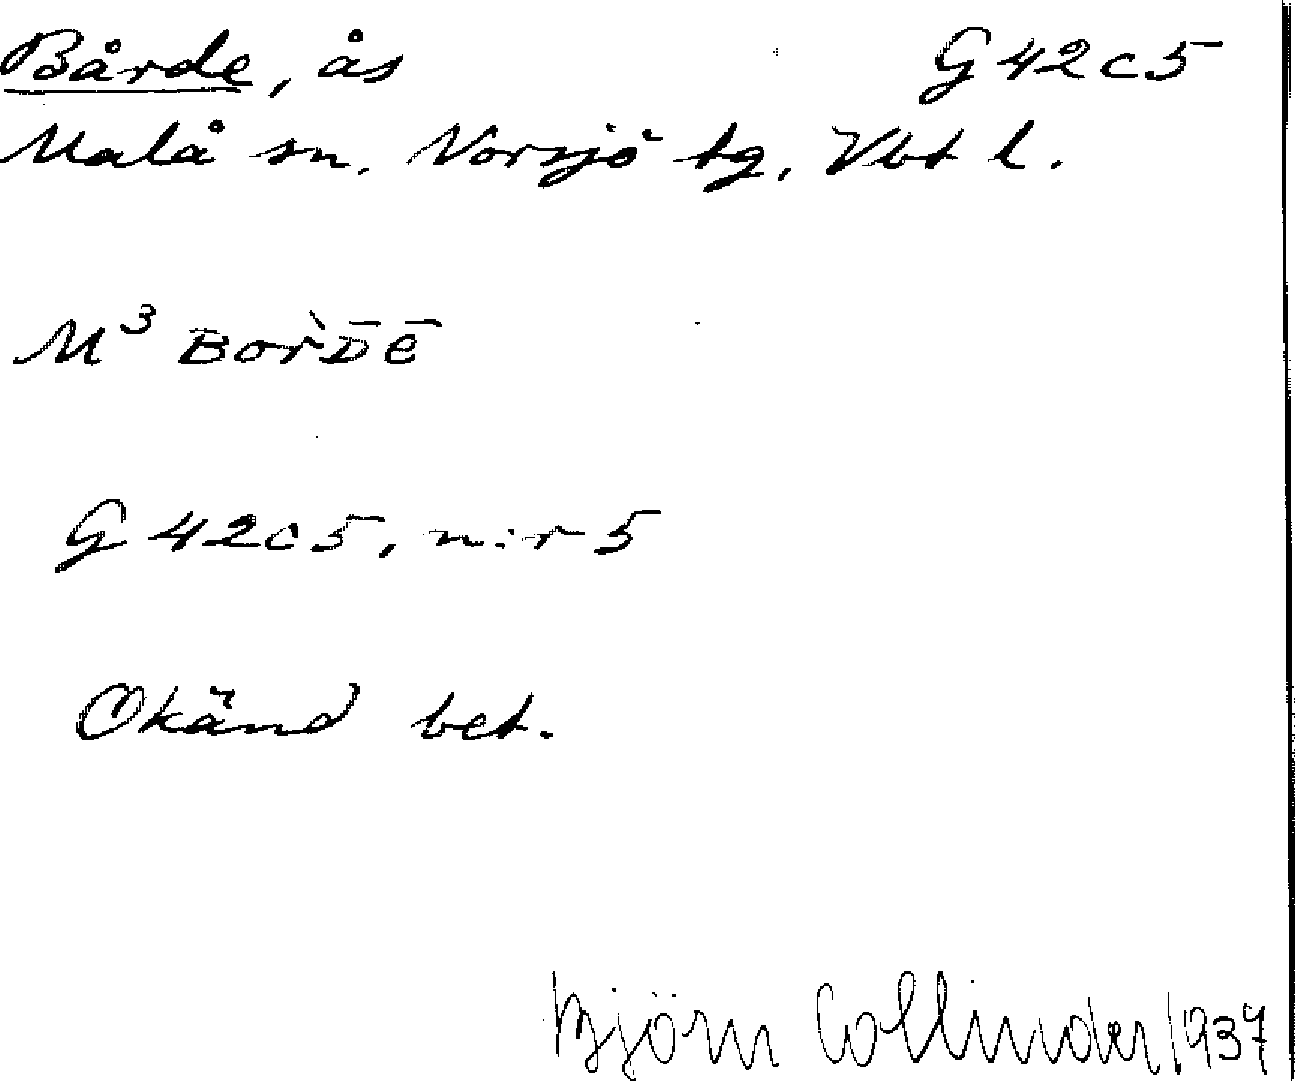 Bårde, ås G42c5
Malå sn. Norsjö tg. Vbt l.
M³ BOR̀D̄Ē
G42c5, n:r 5
Okänd bet.
Björn Collinder 1937